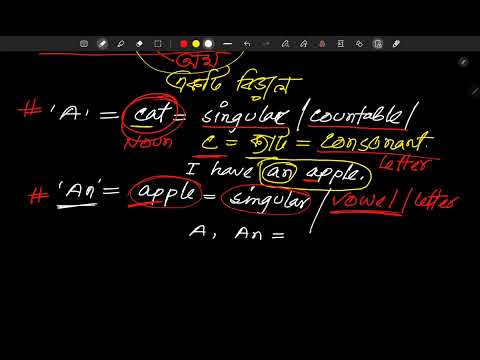 একটি বিড়াল
# 'A' = cat = singular / countable /
Noun
c = ক্যাট = consonant
letter
I have an apple.
# 'An' = apple = singular / vowel / letter
A, An =